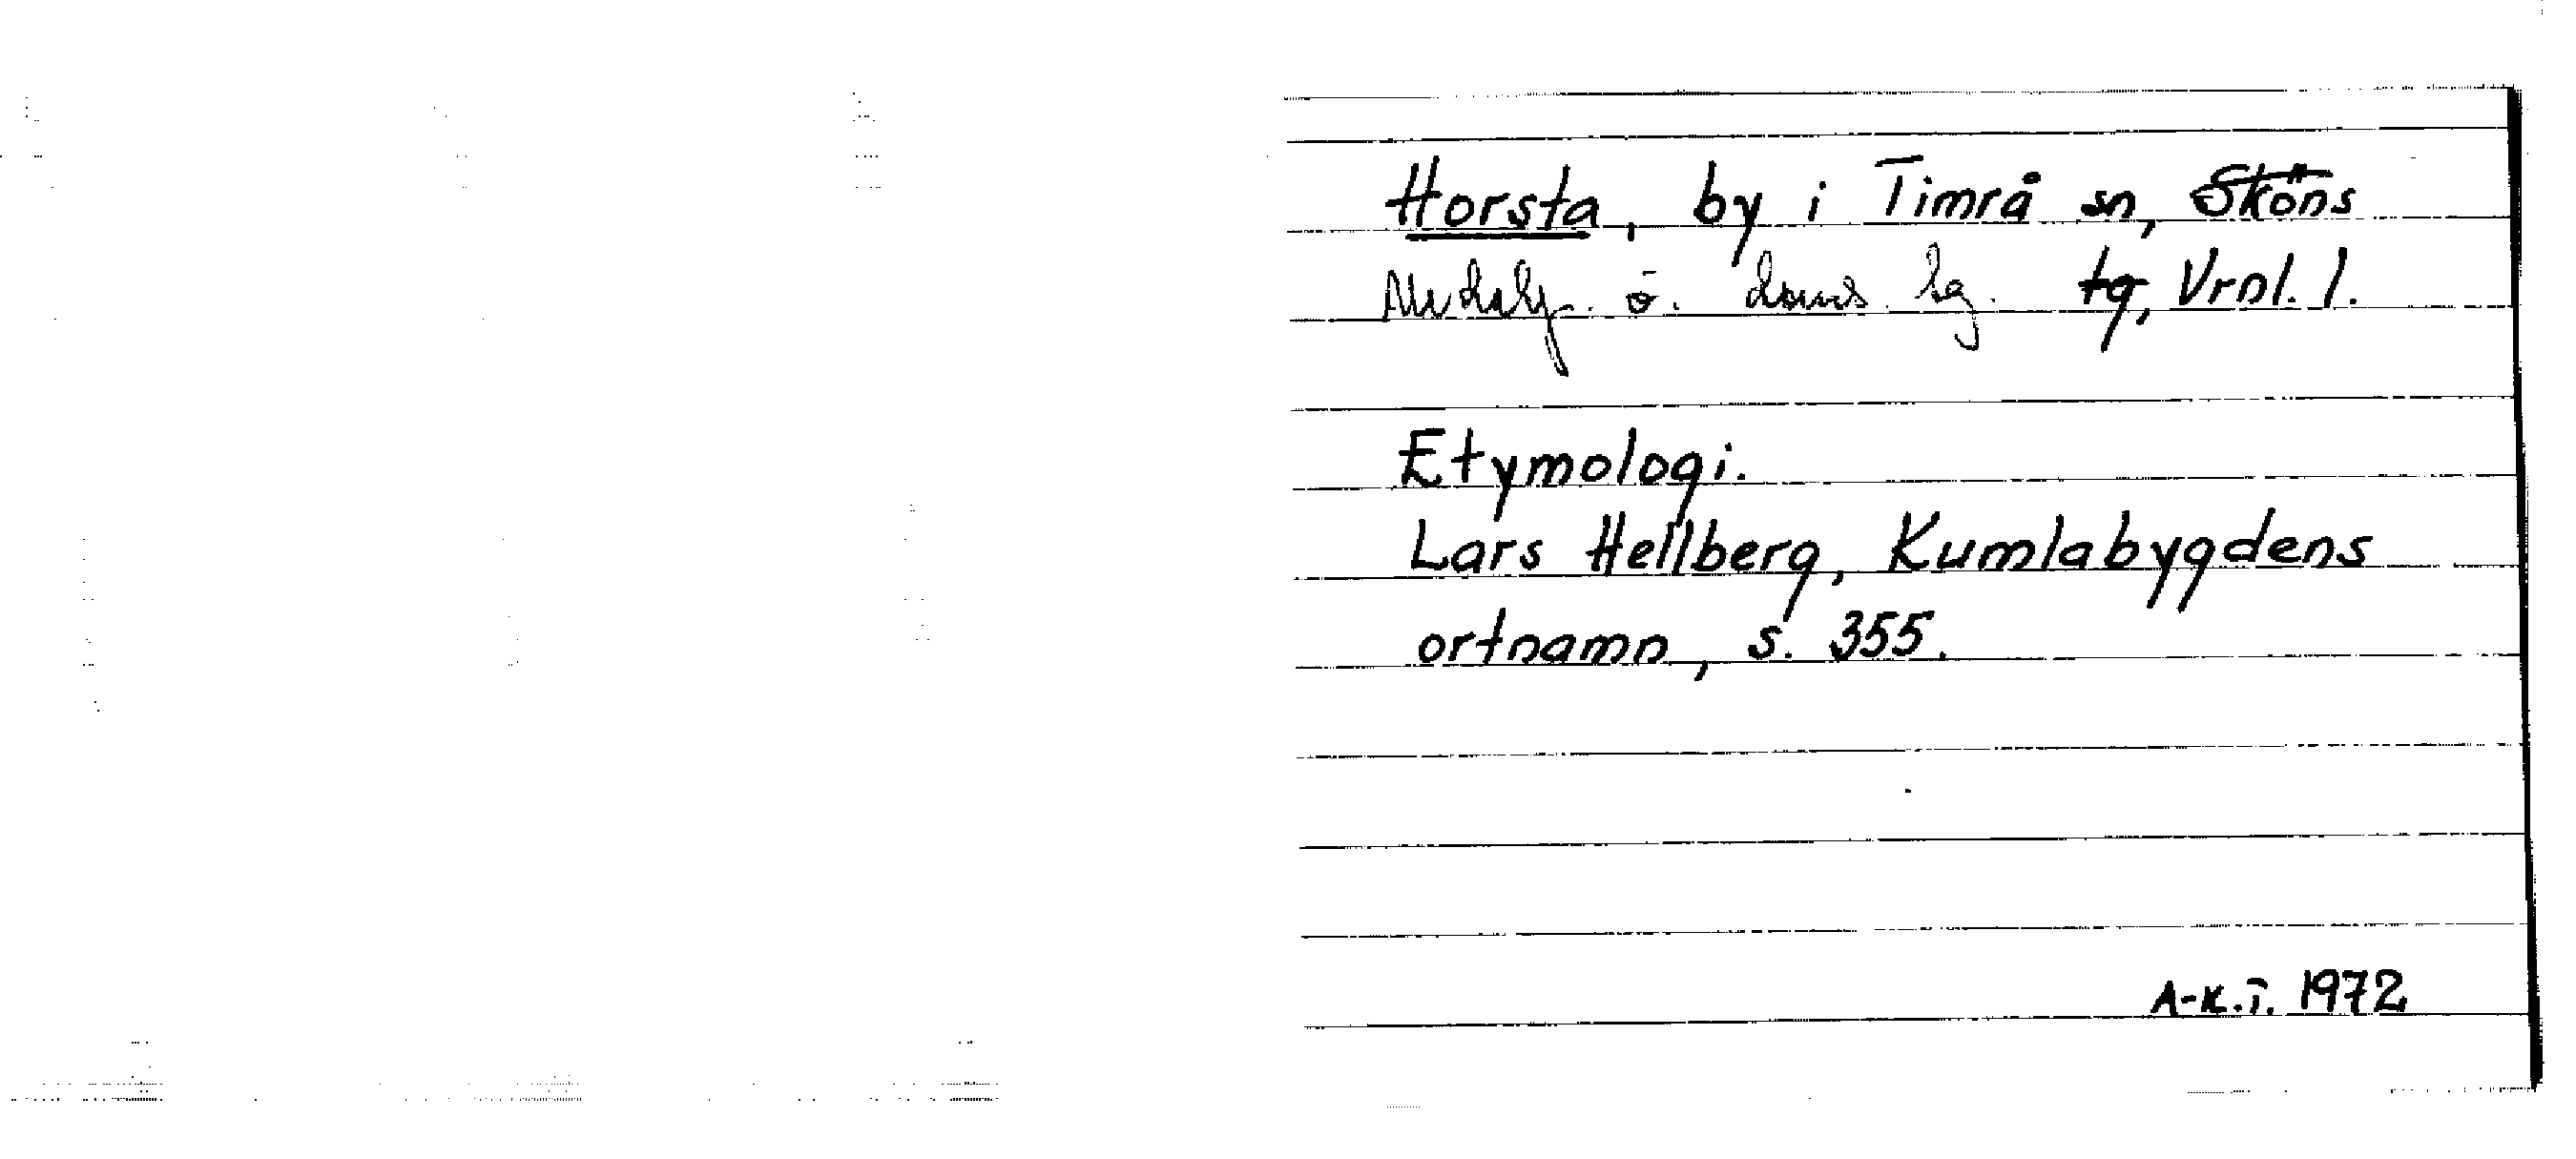 Horsta, by i Timrå sn, Sköns
Medelp. ö. doms sg. tg, Vrnl. l.
Etymologi.
Lars Hellberg, Kumlabygdens
ortnamn, s. 355.
A-K.T. 1972